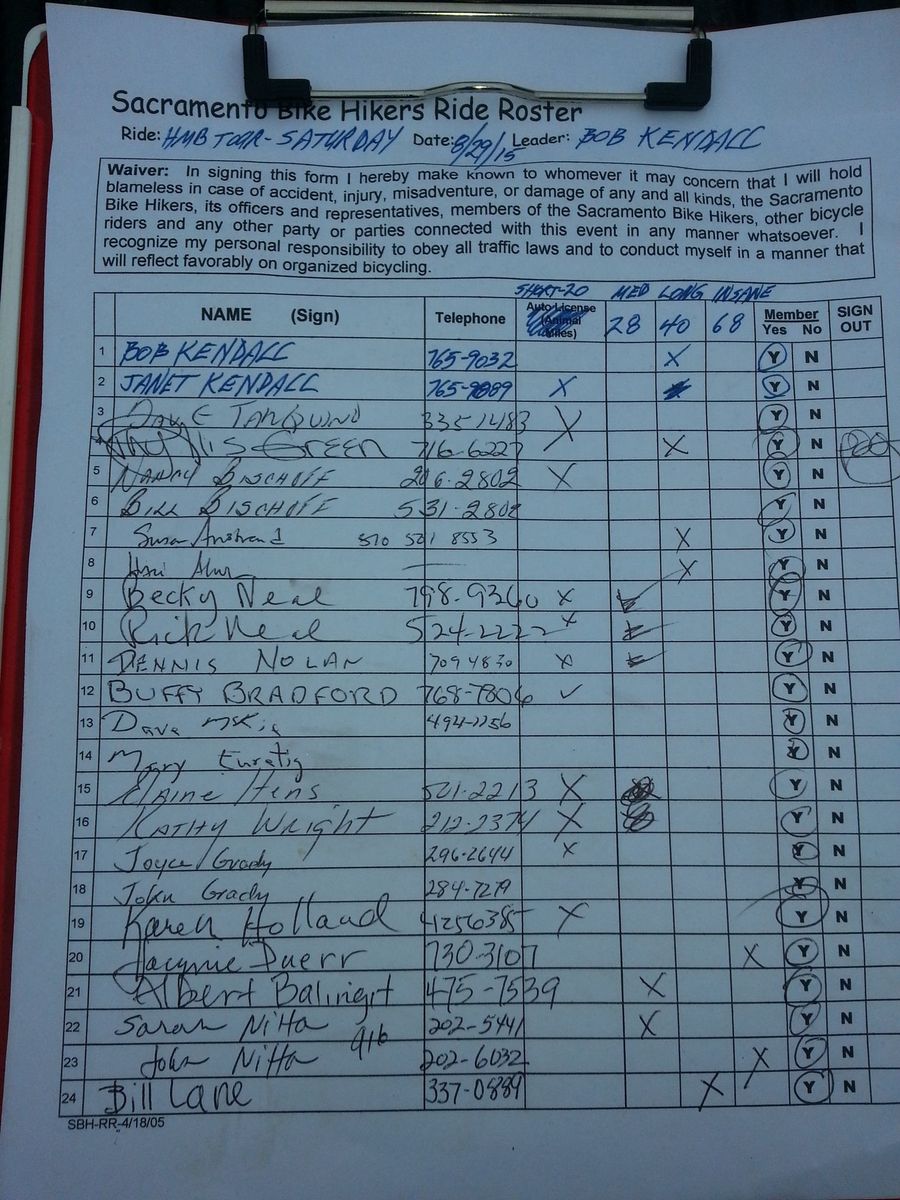 Sacramento Bike Hikers Ride Roster
Ride: HMB TOUR - SATURDAY Date: 8/29/15 Leader: BOB KENDALL
Waiver: In signing this form I hereby make known to whomever it may concern that I will hold
blameless in case of accident, injury, misadventure, or damage of any and all kinds, the Sacramento
Bike Hikers, its officers and representatives, members of the Sacramento Bike Hikers, other bicycle
riders and any other party or parties connected with this event in any manner whatsoever. I
recognize my personal responsibility to obey all traffic laws and to conduct myself in a manner that
will reflect favorably on organized bicycling.
SHORT-20 MED LONG INSANE
NAME (Sign) Telephone Auto License (Animal Miles) 28 40 68 Member Yes No SIGN OUT
1 BOB KENDALL 765-9032 X Y N
2 JANET KENDALL 765-9089 X Y N
3 DAVE TARQUINO 335 1483 X Y N
4 Phyllis Green 716-6227 X Y N
5 NANCY BISCHOFF 206-2802 X Y N
6 BILL BISCHOFF 531-2802 Y N
7 Susan 570 521 8553 X Y N
8 X Y N
9 Becky Neal 798-9360 X Y N
10 Rick Neal 524-2222 X Y N
11 DENNIS NOLAN 709 4830 X Y N
12 BUFFY BRADFORD 768-7806 ✓ Y N
13 Dave 494-1256 Y N
14 Mary Y N
15 Elaine Itens 501-2213 X Y N
16 KATHY WRIGHT 212-2374 X Y N
17 Joyce Grady 296-2644 X Y N
18 John Grady 284-7279 Y N
19 Karen Holland 4256385 X Y N
20 Jacquie Duerr 730-3107 X Y N
21 Albert Balingit 475-7539 X Y N
22 Sarah Nitta 916 202-5441 X Y N
23 John Nitta 202-6032 X Y N
24 Bill Lane 337-0889 X Y N
SBH-RR-4/18/05